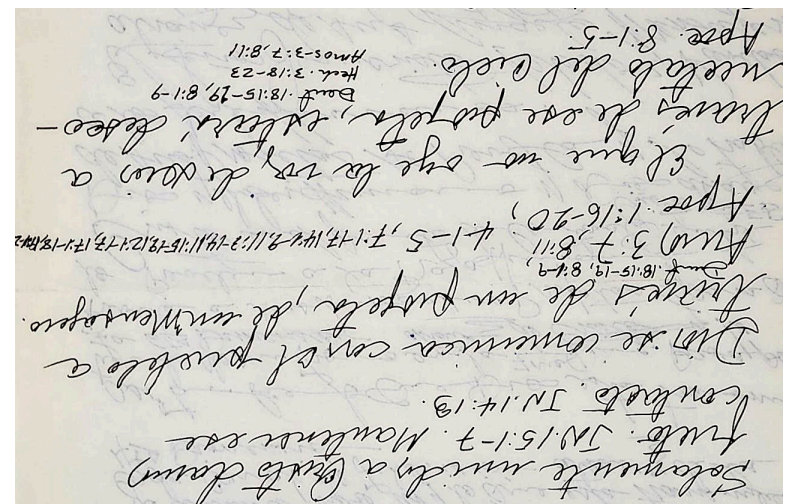 Solamente unidos a Cristo damos
fruto. JN.15:1-7. Mantener ese
contacto. JN.14:13.
Dios se comunica con el pueblo a
través de un profeta, de un Mensajero.
Deut. 18:15-19, 8:1-9
Amos 3:7, 8:11,
Apoc. 1:16-20, 4:1-5, 7:1-17,
El que no oye la voz de Dios a
través de ese profeta, estará desco-
nectado del cielo.
Deut. 18:15-19, 8:1-9
Hech. 3:18-23
Amos-3:7, 8:11
Apoc. 8:1-5.